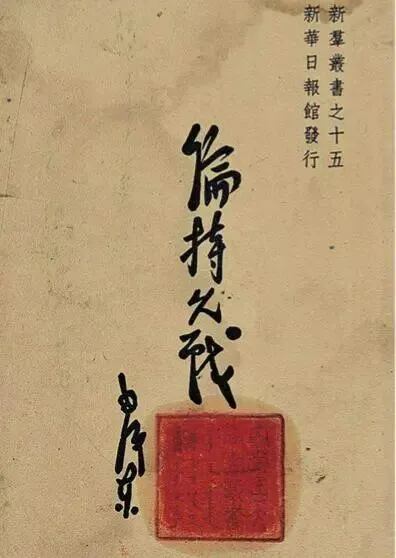 新羣叢書之十五
新華日報館發行
論持久戰
毛澤東